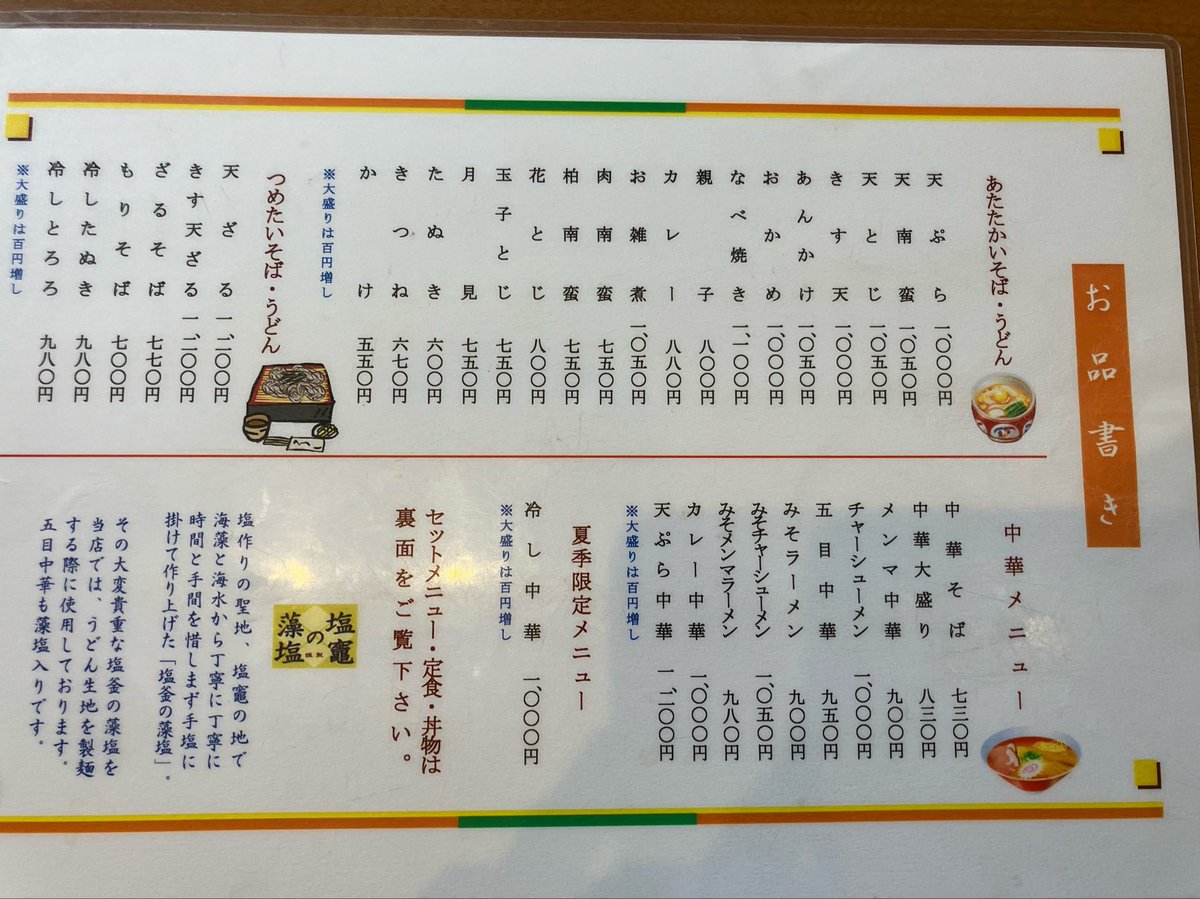 お品書き
あたたかいそば・うどん
天ぷら 一、〇〇〇円
天南蛮 一、〇五〇円
天とじ 一、〇五〇円
きす天 一、〇〇〇円
あんかけ 一、〇五〇円
おかめ 一、〇〇〇円
なべ焼き 一、一〇〇円
親子 八〇〇円
カレー 八八〇円
お雑煮 一、〇五〇円
肉南蛮 七五〇円
柏南蛮 七五〇円
花とじ 八〇〇円
玉子とじ 七五〇円
月見 七五〇円
たぬき 六〇〇円
きつね 六七〇円
かけ 五五〇円
※大盛りは百円増し
つめたいそば・うどん
天ざる 一、二〇〇円
きす天ざる 一、二〇〇円
ざるそば 七七〇円
もりそば 七〇〇円
冷したぬき 九八〇円
冷しとろろ 九八〇円
※大盛りは百円増し
中華メニュー
中華そば 七三〇円
中華大盛り 八三〇円
メンマ中華 九〇〇円
チャーシューメン 一、〇〇〇円
五目中華 九五〇円
みそラーメン 九〇〇円
みそチャーシューメン 一、〇五〇円
みそメンマラーメン 九八〇円
カレー中華 一、〇〇〇円
天ぷら中華 一、二〇〇円
※大盛りは百円増し
夏季限定メニュー
冷し中華 一、〇〇〇円
※大盛りは百円増し
セットメニュー・定食・丼物は
裏面をご覧下さい。
塩竈
の
藻塩
塩作りの聖地、塩竈の地で
海藻と海水から丁寧に丁寧に
時間と手間を惜しまず手塩に
掛けて作り上げた「塩釜の藻塩」。
その大変貴重な塩釜の藻塩を
当店では、うどん生地を製麺
する際に使用しております。
五目中華も藻塩入りです。